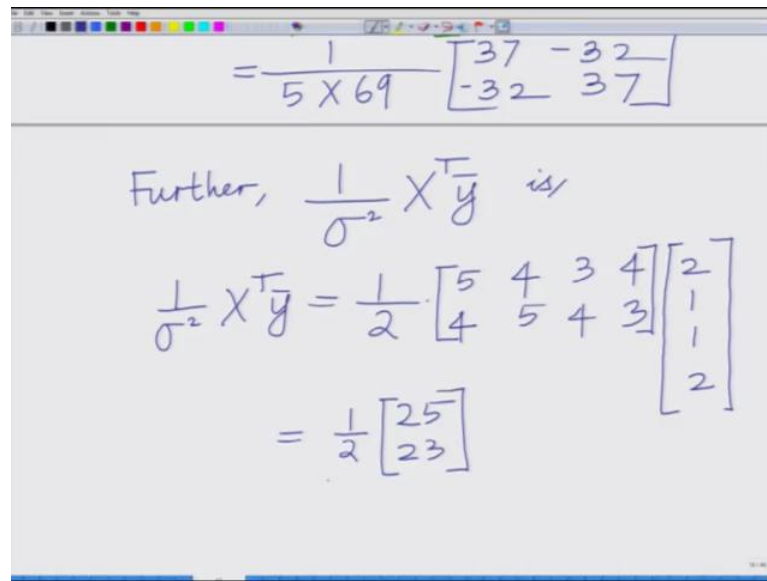 = 1 / (5 X 69) [37 -32
-32 37]
Further, 1/σ² X^T ȳ is,
1/σ² X^T ȳ = 1/2 · [5 4 3 4
4 5 4 3] [2
1
1
2]
= 1/2 [25
23]